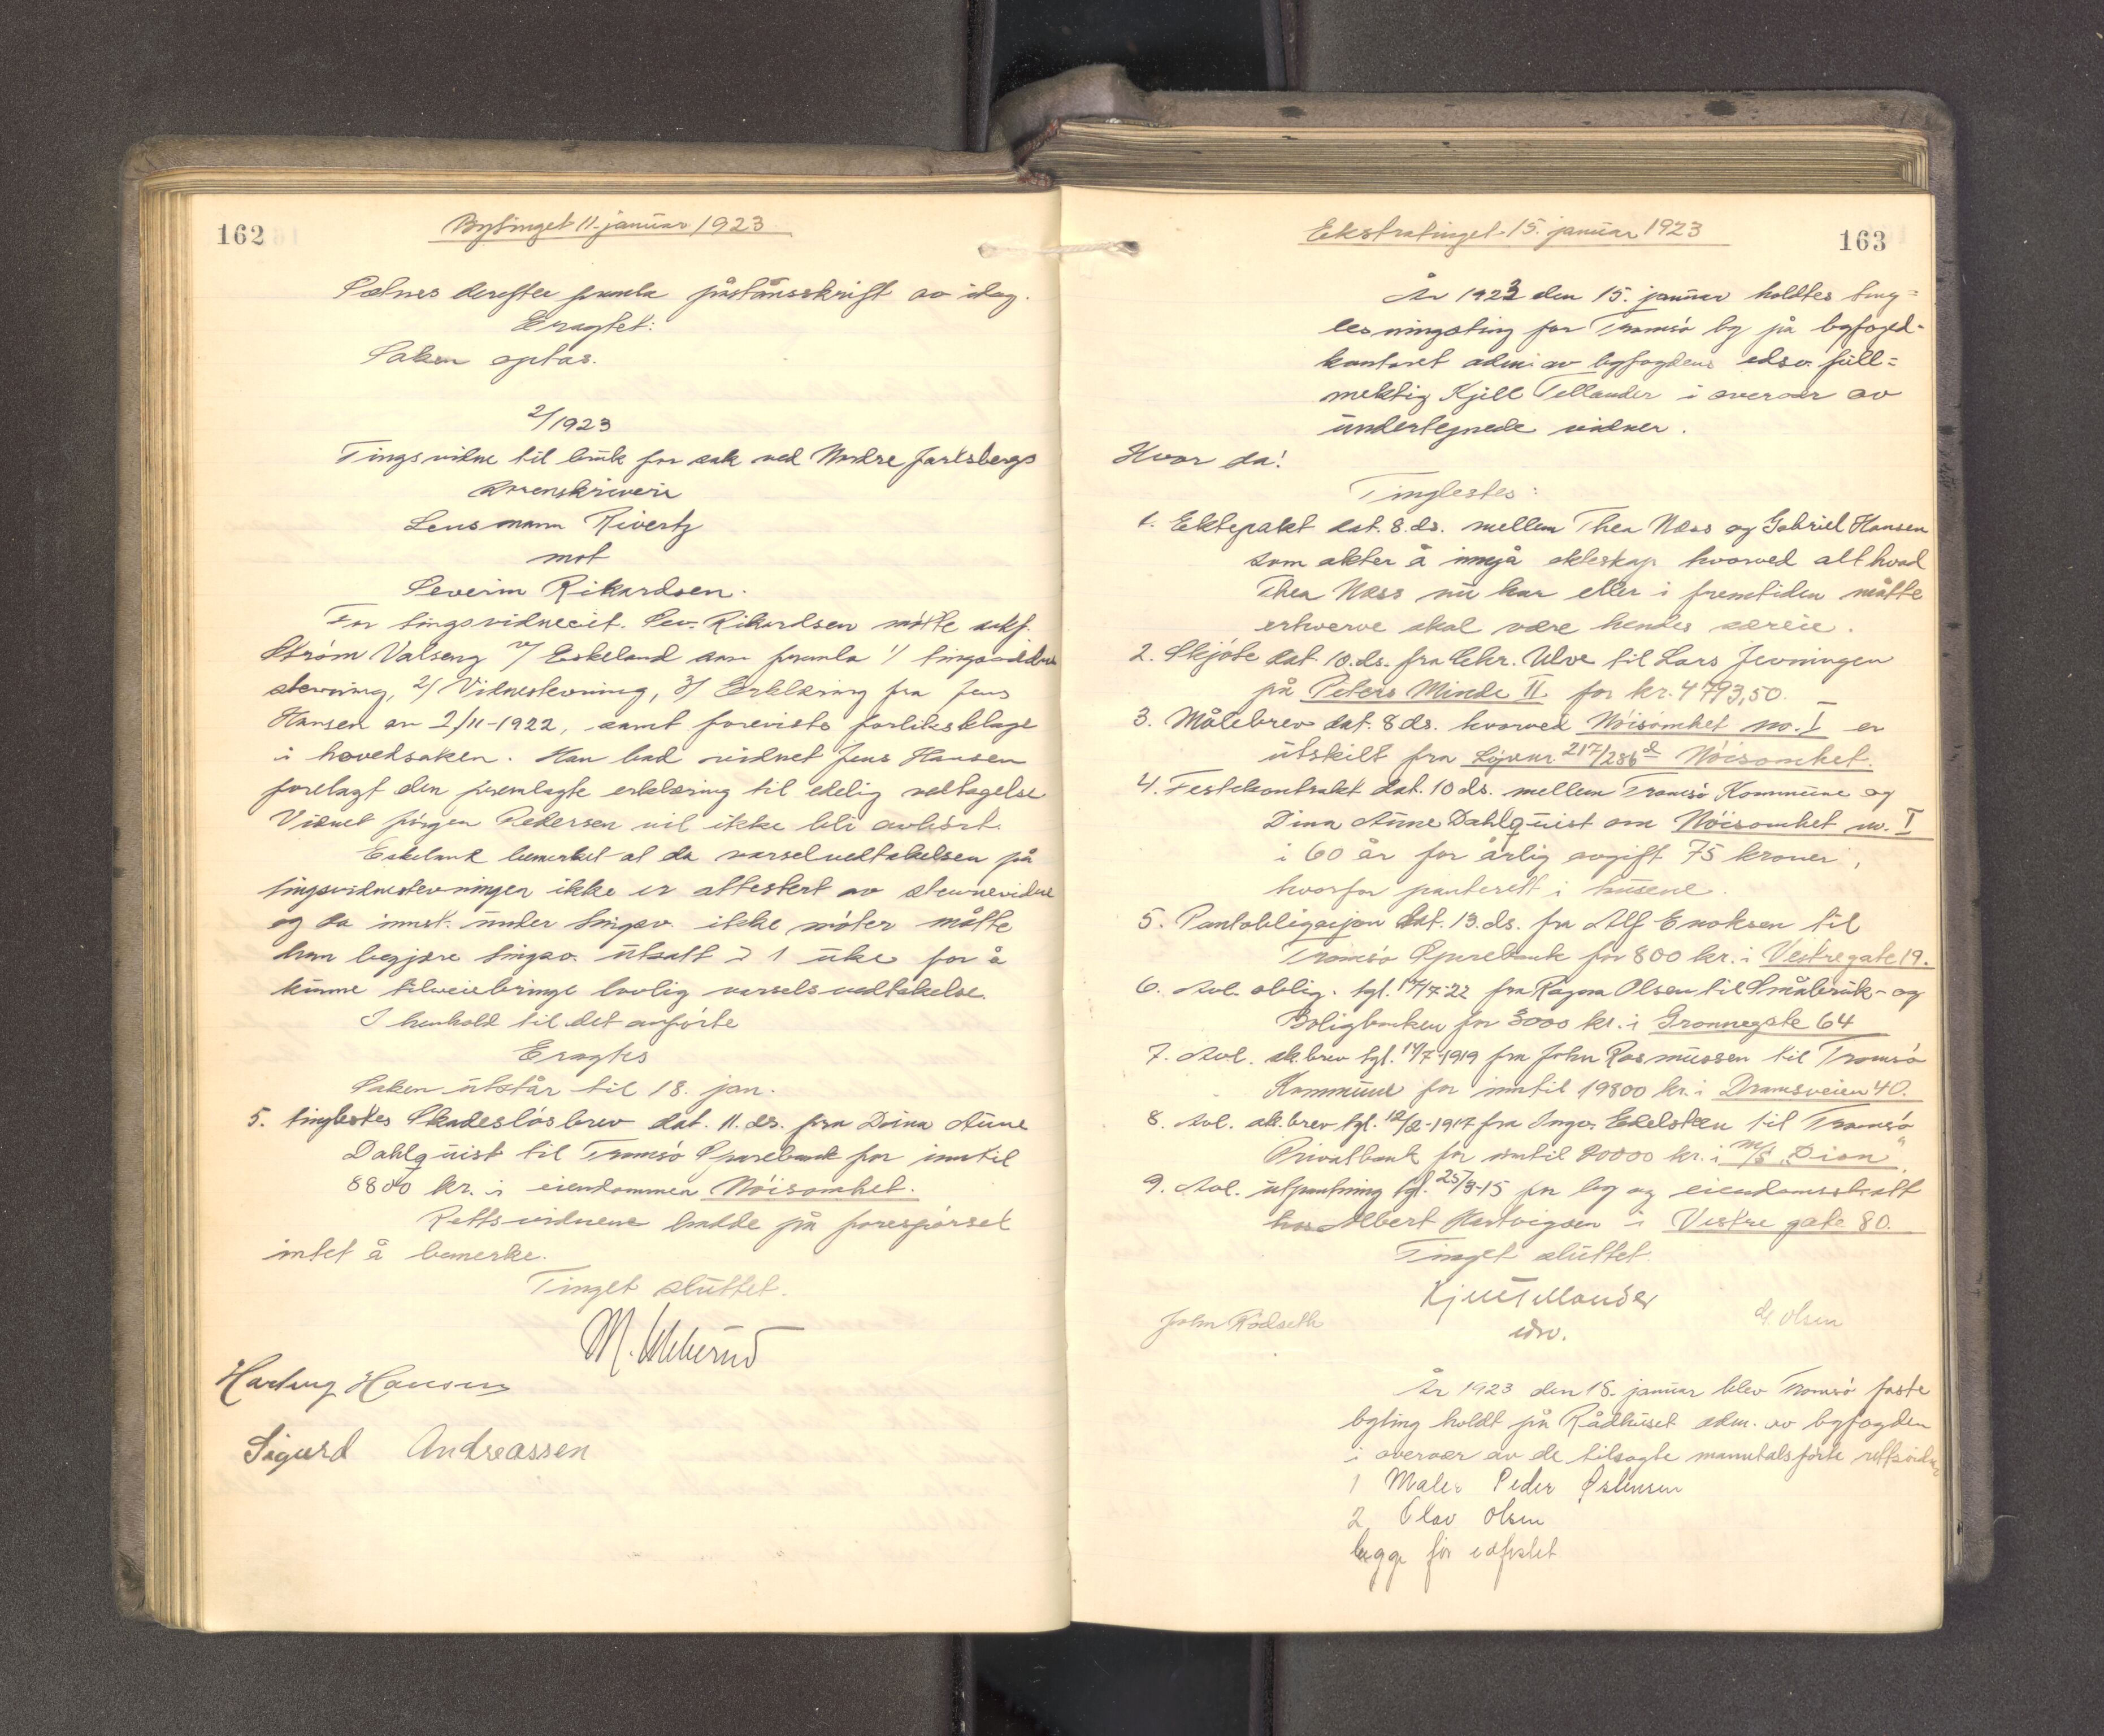 162
Bytinget 11. januar 1923
Sætnes derefter framla påstånsskrift av idag.
Eragtet:
Saken optas.
2/1923
Tingsvidne til bruk for sak ved Nordre Jarlsbergs
sorenskriveri
Lensmann Rivertz
mot
Severin Rikardsen.
For tingsvidneeit. Sev. Rikardsen møtte sakf.
Strøm Valseng v/ Eskeland som framla 1/ tingsvidne
stevning, 2/ Vidnestevning, 3/ Erklæring fra Jens
Hansen av 2/11-1922, samt foreviste forliksklage
i hovedsaken. Han bad vidnet Jens Hansen
forelagt den fremlagte erklæring til edelig vedtagelse
Vidnet Jørgen Pedersen vil ikke bli avhørt.
Eskeland bemerket at da varselvedtakelsen på
tingsvidnestevningen ikke er attestert av stevnevidne
og da innst. under tingsv. ikke møter måtte
han begjære tingsv. utsatt i 1 uke for å
kunne tilveiebringe lovlig varselsvedtakelse.
I henhold til det anførte
Eragtes
Saken utstår til 18. jan.
5. tinglestes Skadesløsbrev dat. 11. ds. fra Dina Aune
Dahlquist til Tromsø Sparebank for inntil
8800 kr. i eiendommen Nøisomhet.
Rettsvidnene hadde på forespørsel
intet å bemerke.
Tinget sluttet.
Hartvig Hansen
Sigurd Andreassen
Ekstratinget 15. januar 1923
163
År 1923 den 15. januar holdtes ting=
lesningsting for Tromsø by på byfoged-
kontoret adm. av byfogdens edsv. full=
mektig Kjell Tellander i overvær av
undertegnede vidner.
Hvor da!
Tinglestes:
1. Ektepakt dat. 8 ds. mellem Thea Næss og Gabriel Hansen
som akter å inngå ekteskap hvorved alt hvad
Thea Næss nu har eller i fremtiden måtte
erhverve skal være hendes særeie.
2. Skjøte dat. 10. ds. fra Chr. Ulve til Lars Jenningen
på Peters Minde II for kr. 4793,50.
3. Målebrev dat. 8 ds. hvorved Nøisomhet no. I er
utskilt fra Løpenr. 217/286 d Nøisomhet.
4. Festekontrakt dat. 10 ds. mellem Tromsø Kommune og
Dina Aune Dahlquist om Nøisomhet no. I
i 60 år for årlig avgift 75 kroner,
hvorfor panterett i husene.
5. Pantobligasjon dat. 13. ds. fra Alf Enoksen til
Tromsø Sparebank for 800 kr. i Vestregate 19.
6. Avl. oblig. tgl. 17/7-22 fra Ragna Olsen til Småbruk- og
Boligbanken for 3000 kr. i Grønnegate 64
7. Avl. sk.brev tgl. 14/7-1919 fra John Rasmussen til Tromsø
Kommune for inntil 19800 kr. i Dramsveien 40.
8. Avl. sk.brev tgl. 12/2-1917 fra Ingv. Edelsteen til Tromsø
Privatbank for inntil 20000 kr. i m/s „Dion“
9. Avl. utpantning tgl. 25/3-15 for by og eiendomsskatt
hos Albert Hartvigsen i Vestre gate 80.
Tinget sluttet.
Kjell Tellander
edsv.
John Rødseth
Olsen
År 1923 den 18. januar blev Tromsø faste
byting holdt på Rådhuset adm. av byfogden
i overvær av de tilsagte manntalsførte rettsvidner
1 Maler Peder Østensen
2 Olav Olsen
begge før edfestet